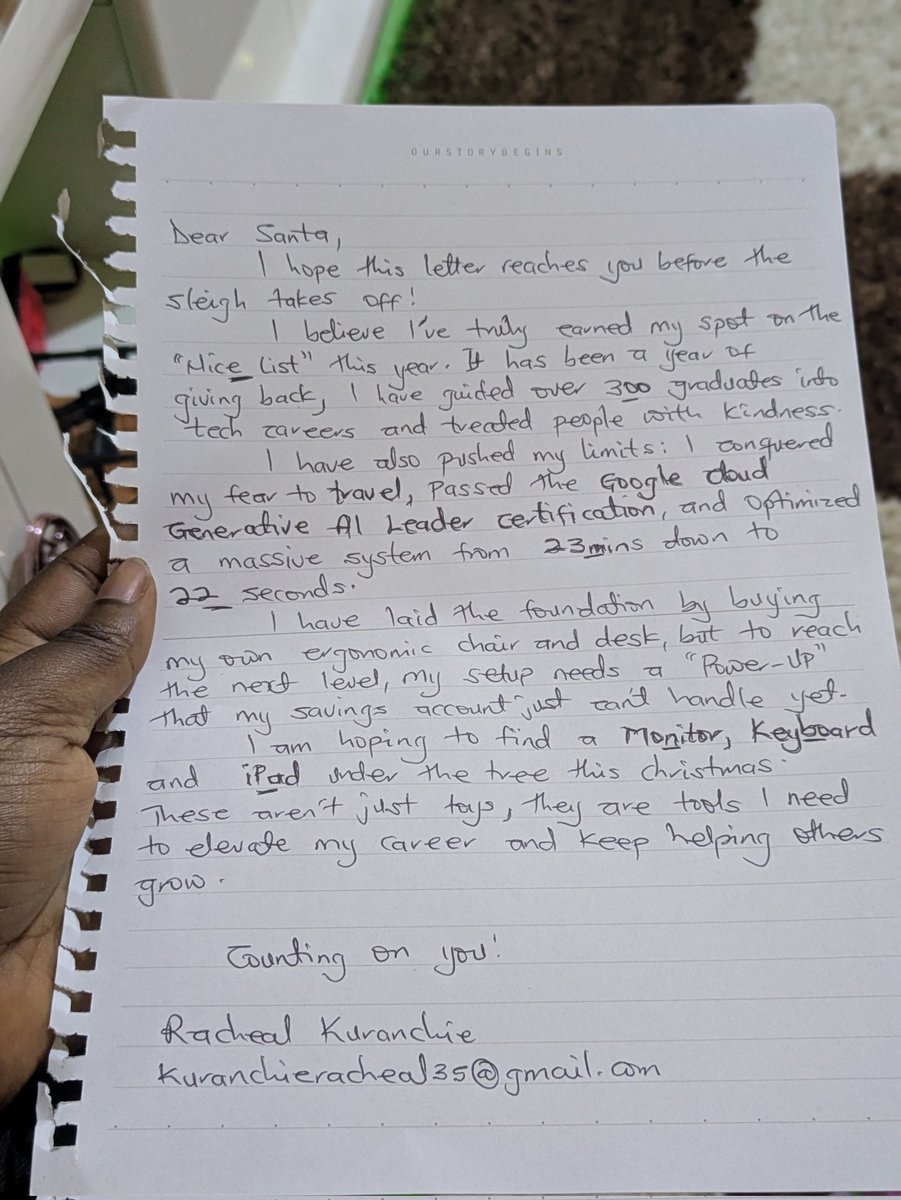 OURSTORYBEGINS
Dear Santa,
I hope this letter reaches you before the
sleigh takes off!
I believe I've truly earned my spot on the
"Nice List" this year. It has been a year of
giving back, I have guided over 300 graduates into
tech careers and treated people with kindness.
I have also pushed my limits: I conquered
my fear to travel, passed the Google Cloud
Generative AI Leader certification, and optimized
a massive system from 23mins down to
22 seconds.
I have laid the foundation by buying
my own ergonomic chair and desk, but to reach
the next level, my setup needs a "Power-Up"
that my savings account just can't handle yet.
I am hoping to find a Monitor, Keyboard
and iPad under the tree this christmas.
These aren't just toys, they are tools I need
to elevate my career and keep helping others
grow.
Counting on you!
Racheal Kuranchie
Kuranchieracheal35@gmail.com